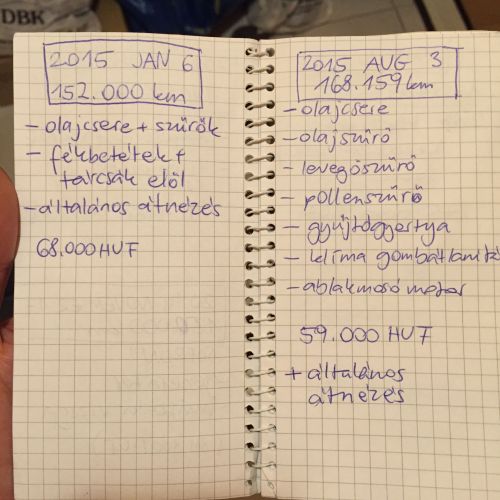 DBK
2015 JAN 6
152.000 km
- olajcsere + szűrők
- fékbetétek +
tárcsák elől
- általános átnézés
68.000 HUF
2015 AUG 3
168.159 km
- olajcsere
- olajszűrő
- levegőszűrő
- pollenszűrő
- gyújtógyertya
- klíma gombátlanítá
- ablakmosó motor
59.000 HUF
+ általános
átnézés